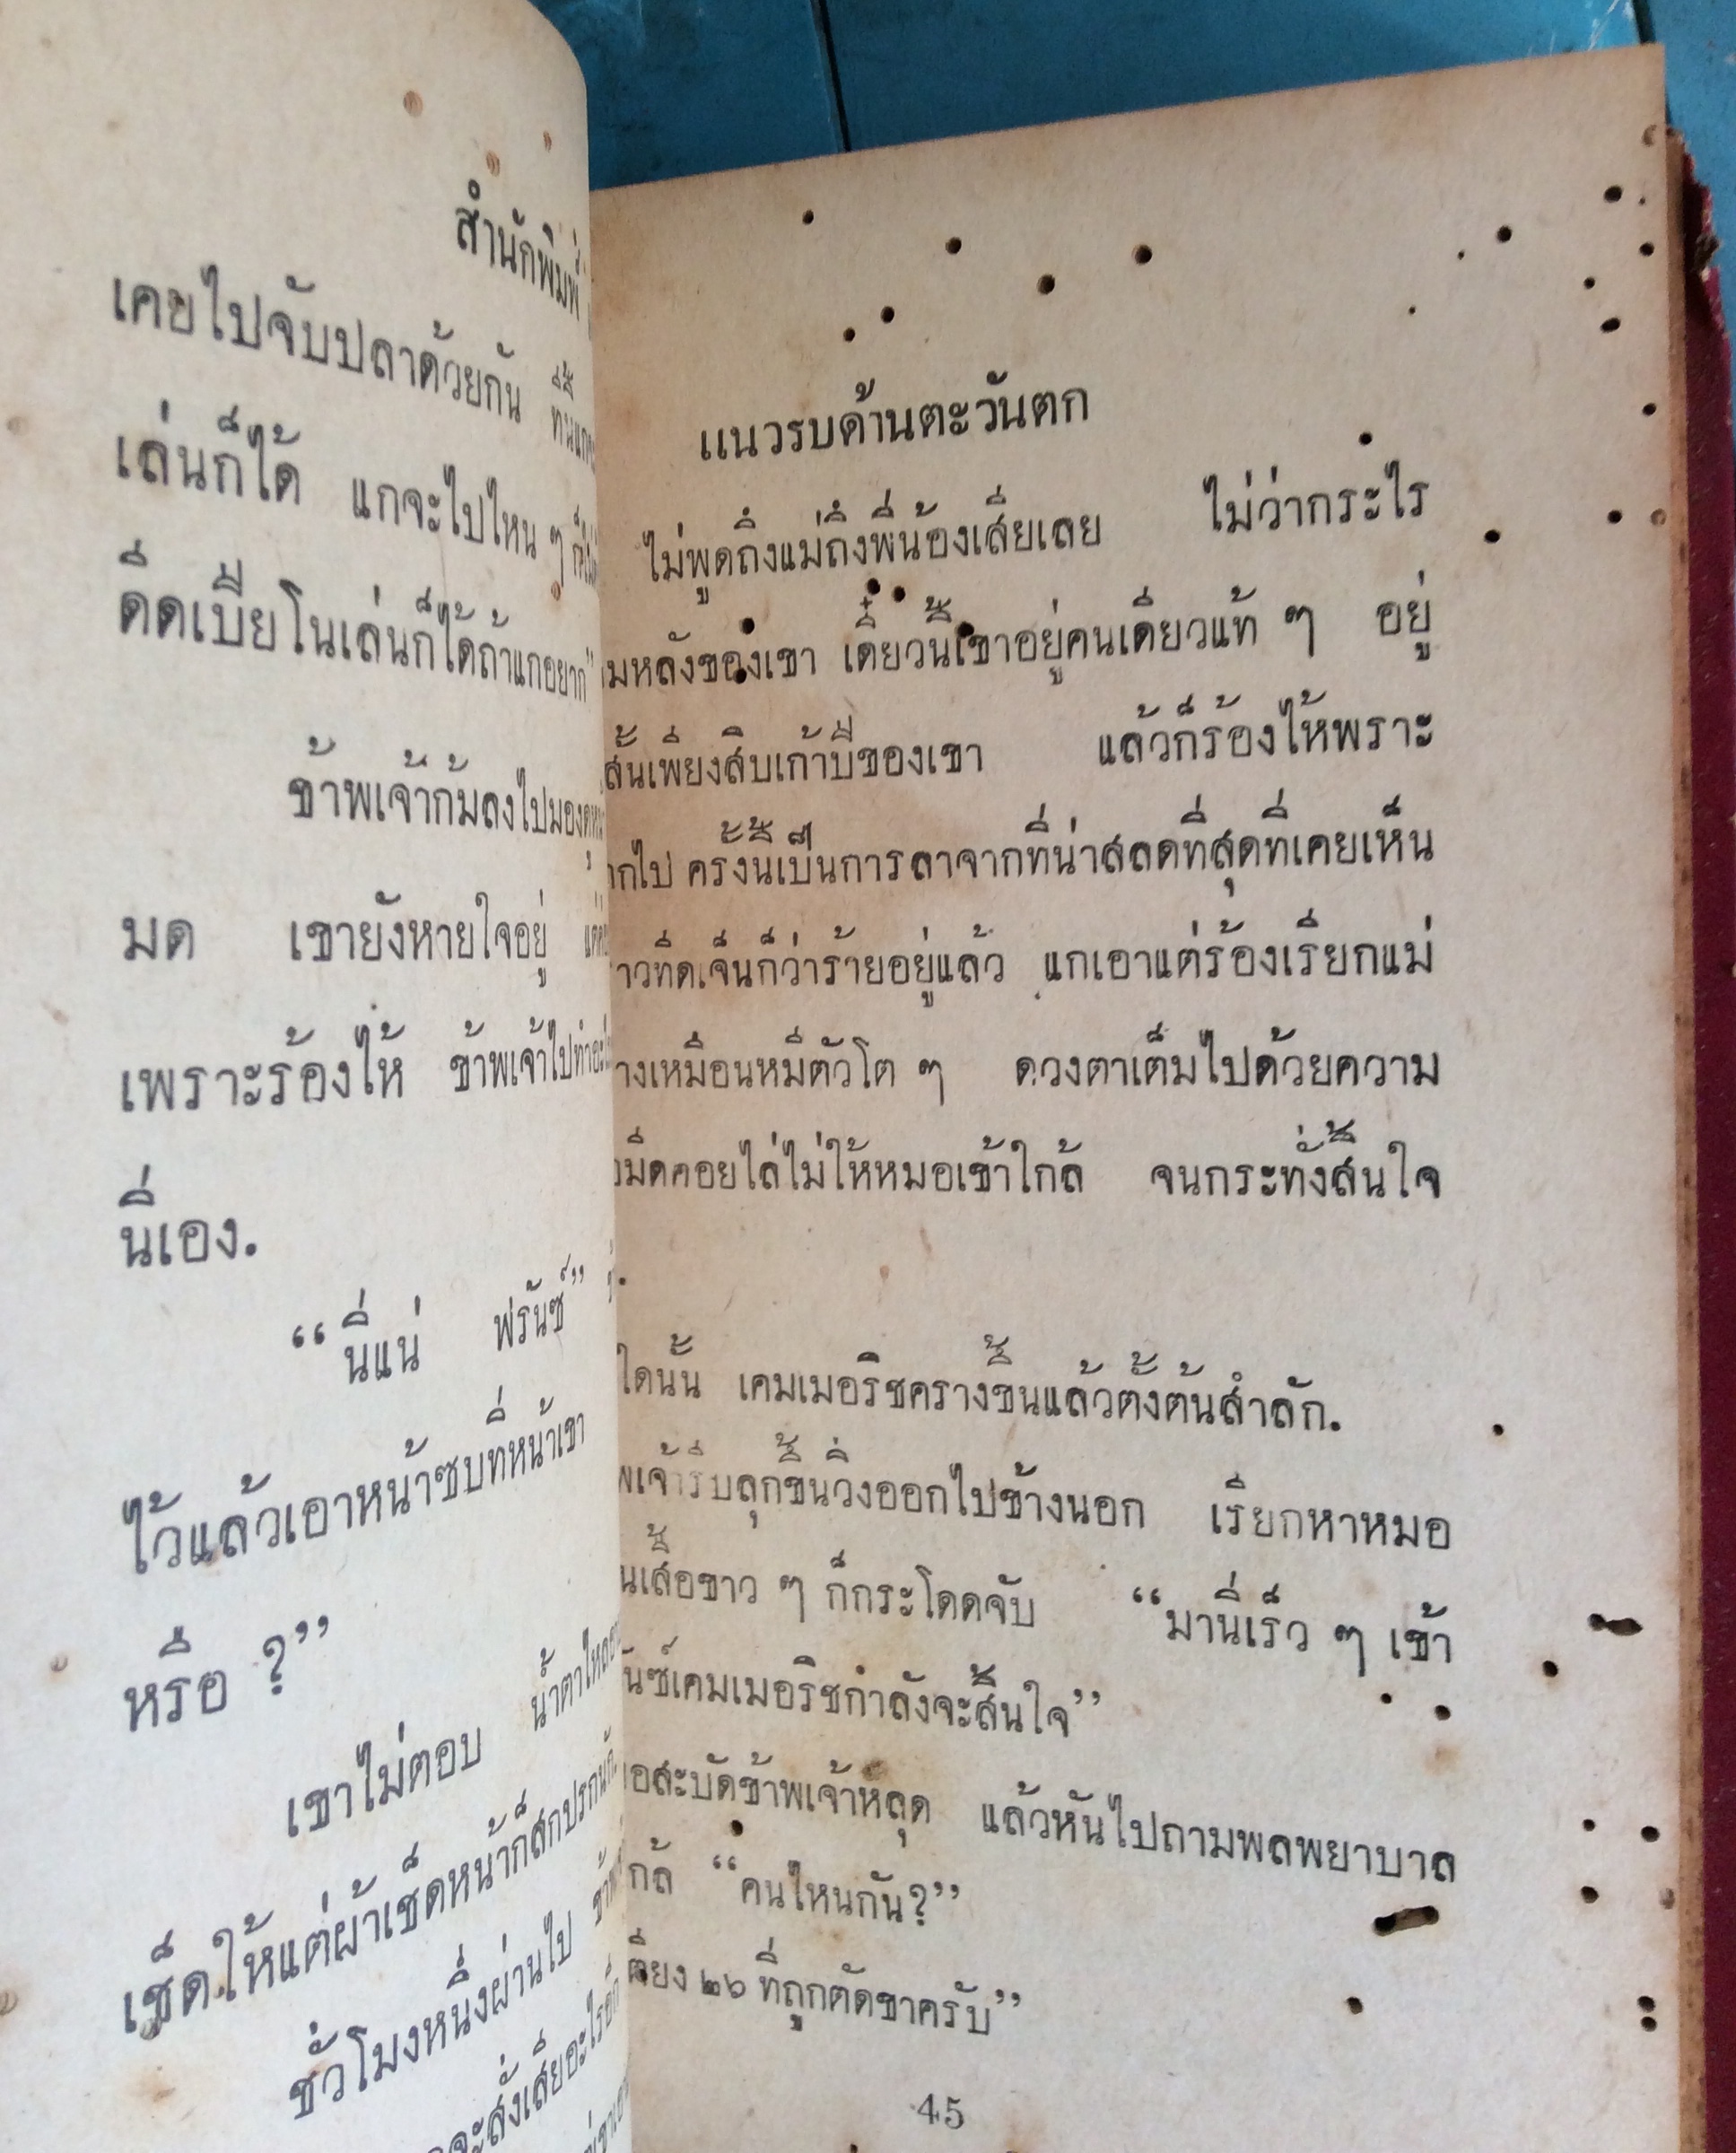 สำนักพิมพ์
เคยไปจับปลาด้วยกัน
เล่นก็ได้ แกจะไปไหน ๆ
ดีดเปียโนเล่นก็ได้ถ้าแกอยาก"
ข้าพเจ้าก้มลงไปมองดู
มด เขายังหายใจอยู่
เพราะร้องไห้ ข้าพเจ้าไปทำ
นี่เอง.
“นี่แน่ ฟรันซ์”
ไว้แล้วเอาหน้าซบที่หน้าเขา
หรือ ?”
เขาไม่ตอบ น้ำตาไหล
เช็ดให้แต่ผ้าเช็ดหน้าก็สกปรก
ชั่วโมงหนึ่งผ่านไป
จะสั่งเสียอะไร
แนวรบด้านตะวันตก
ไม่พูดถึงแม่ถึงพี่น้องเสียเลย ไม่ว่ากระไร
หลังของเขา เดี๋ยวนี้เขาอยู่คนเดียวแท้ ๆ อยู่
สั้นเพียงสิบเก้าปีของเขา แล้วก็ร้องไห้เพราะ
ไป ครั้งนี้เป็นการลาจากที่น่าสลดที่สุดที่เคยเห็น
ทิดเจ็นก็ว่าร้ายอยู่แล้ว แกเอาแต่ร้องเรียกแม่
เหมือนหมีตัวโต ๆ ดวงตาเต็มไปด้วยความ
มีดคอยไล่ไม่ให้หมอเข้าใกล้ จนกระทั่งสิ้นใจ
ใดนั้น เคมเมอริชครางขึ้นแล้วตั้งต้นสำลัก.
พเจ้ารีบลุกขึ้นวิ่งออกไปข้างนอก เรียกหาหมอ
เสื้อขาว ๆ ก็กระโดดจับ “มานี่เร็ว ๆ เข้า
เคมเมอริชกำลังจะสิ้นใจ”
สะบัดข้าพเจ้าหลุด แล้วหันไปถามพลพยาบาล
กล้ “คนไหนกัน?”
เตียง ๒๖ ที่ถูกตัดขาครับ”
45